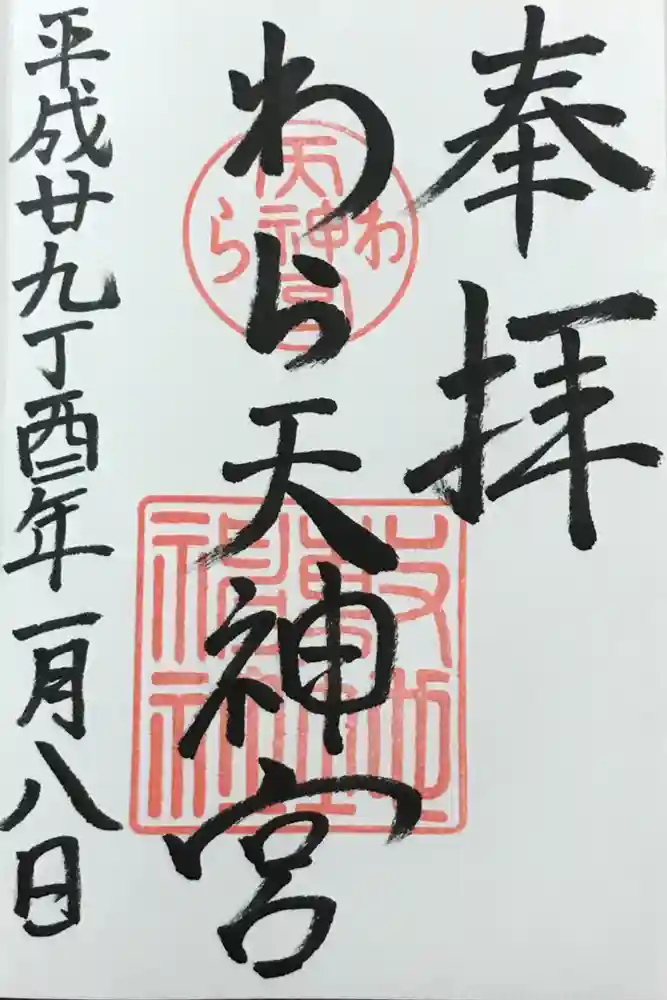 奉拝
わら天神宮
平成廿九丁酉年一月八日
わら
天神宮